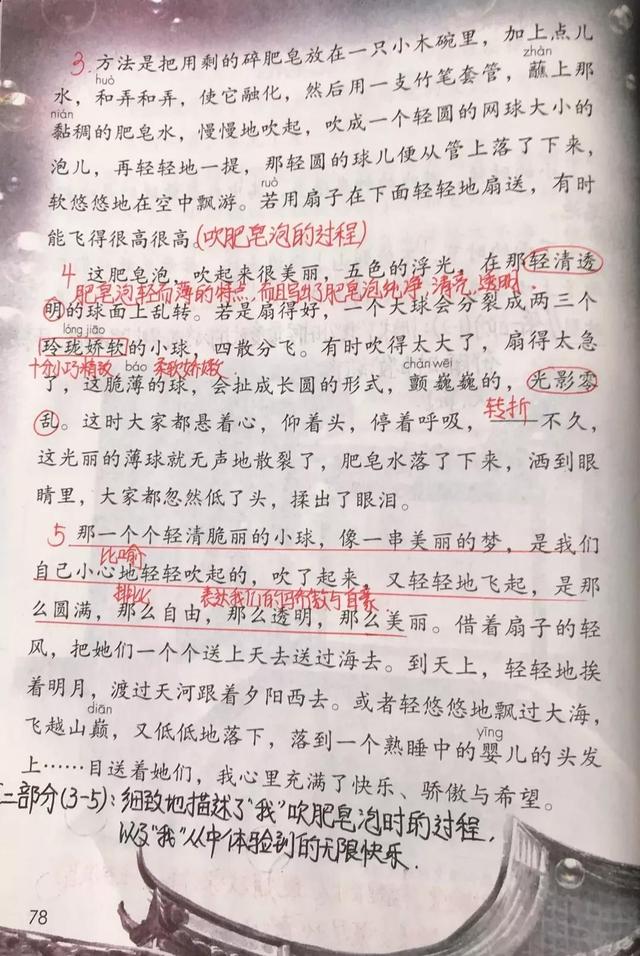 3. 方法是把用剩的碎肥皂放在一只小木碗里，加上点儿
huó zhàn
水，和弄和弄，使它融化，然后用一支竹笔套管，蘸上那
nián
黏稠的肥皂水，慢慢地吹起，吹成一个轻圆的网球大小的
泡儿，再轻轻地一提，那轻圆的球儿便从管上落了下来，
ruò
软悠悠地在空中飘游。若用扇子在下面轻轻地扇送，有时
能飞得很高很高。(吹肥皂泡的过程)
4 这肥皂泡，吹起来很美丽，五色的浮光，在那轻清透
肥皂泡轻而薄的特点，而且写出了肥皂泡纯净、清亮、透明.
明的球面上乱转。若是扇得好，一个大球会分裂成两三个
lóng jiāo
玲珑娇软的小球，四散分飞。有时吹得太大了，扇得太急
十分小巧精致 báo 柔软娇嫩. chàn wēi
了，这脆薄的球，会扯成长圆的形式，颤巍巍的，光影零
乱。这时大家都悬着心，仰着头，停着呼吸，转折——不久，
这光丽的薄球就无声地散裂了，肥皂水落了下来，洒到眼
睛里，大家都忽然低了头，揉出了眼泪。
5 那一个个轻清脆丽的小球，像一串美丽的梦，是我们
比喻
自己小心地轻轻吹起的，吹了起来，又轻轻地飞起，是那
排比 表达我们的
么圆满，那么自由，那么透明，那么美丽。借着扇子的轻
风，把她们一个个送上天去送过海去。到天上，轻轻地挨
着明月，渡过天河跟着夕阳西去。或者轻悠悠地飘过大海，
diān yīng
飞越山巅，又低低地落下，落到一个熟睡中的婴儿的头发
上……目送着她们，我心里充满了快乐、骄傲与希望。
二部分(3-5)：细致地描述了“我”吹肥皂泡时的过程，
以及“我”从中体验到的无限快乐.
78